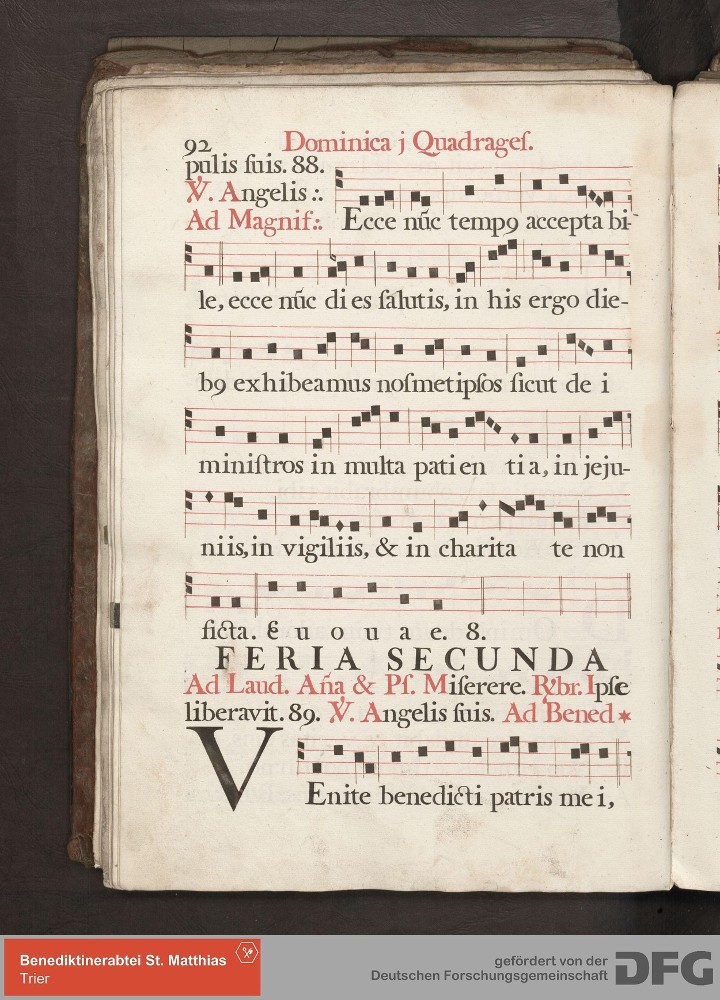 92 Dominica j Quadrageſ.
pulis ſuis. 88.
℣. Angelis :.
Ad Magnif:. Ecce nūc temp9 accepta bi-
le, ecce nūc di es ſalutis, in his ergo die-
b9 exhibeamus noſmetipſos ſicut de i
miniſtros in multa pati en ti a, in jeju-
niis, in vigiliis, & in charita te non
ficta. e u o u a e. 8.
FERIA SECUNDA
Ad Laud. Aña & Pſ. Miſerere. ℟br. Ipſe
liberavit. 89. ℣. Angelis ſuis. Ad Bened *
VEnite benedicti patris me i,
Benediktinerabtei St. Matthias
Trier
gefördert von der
Deutschen Forschungsgemeinschaft DFG